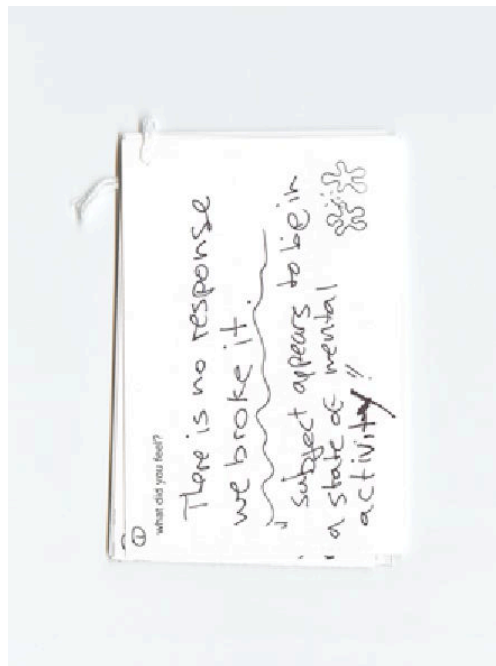 what did you feel?
There is no response
we broke it.
subject appears to be in
a state of mental
activity!!